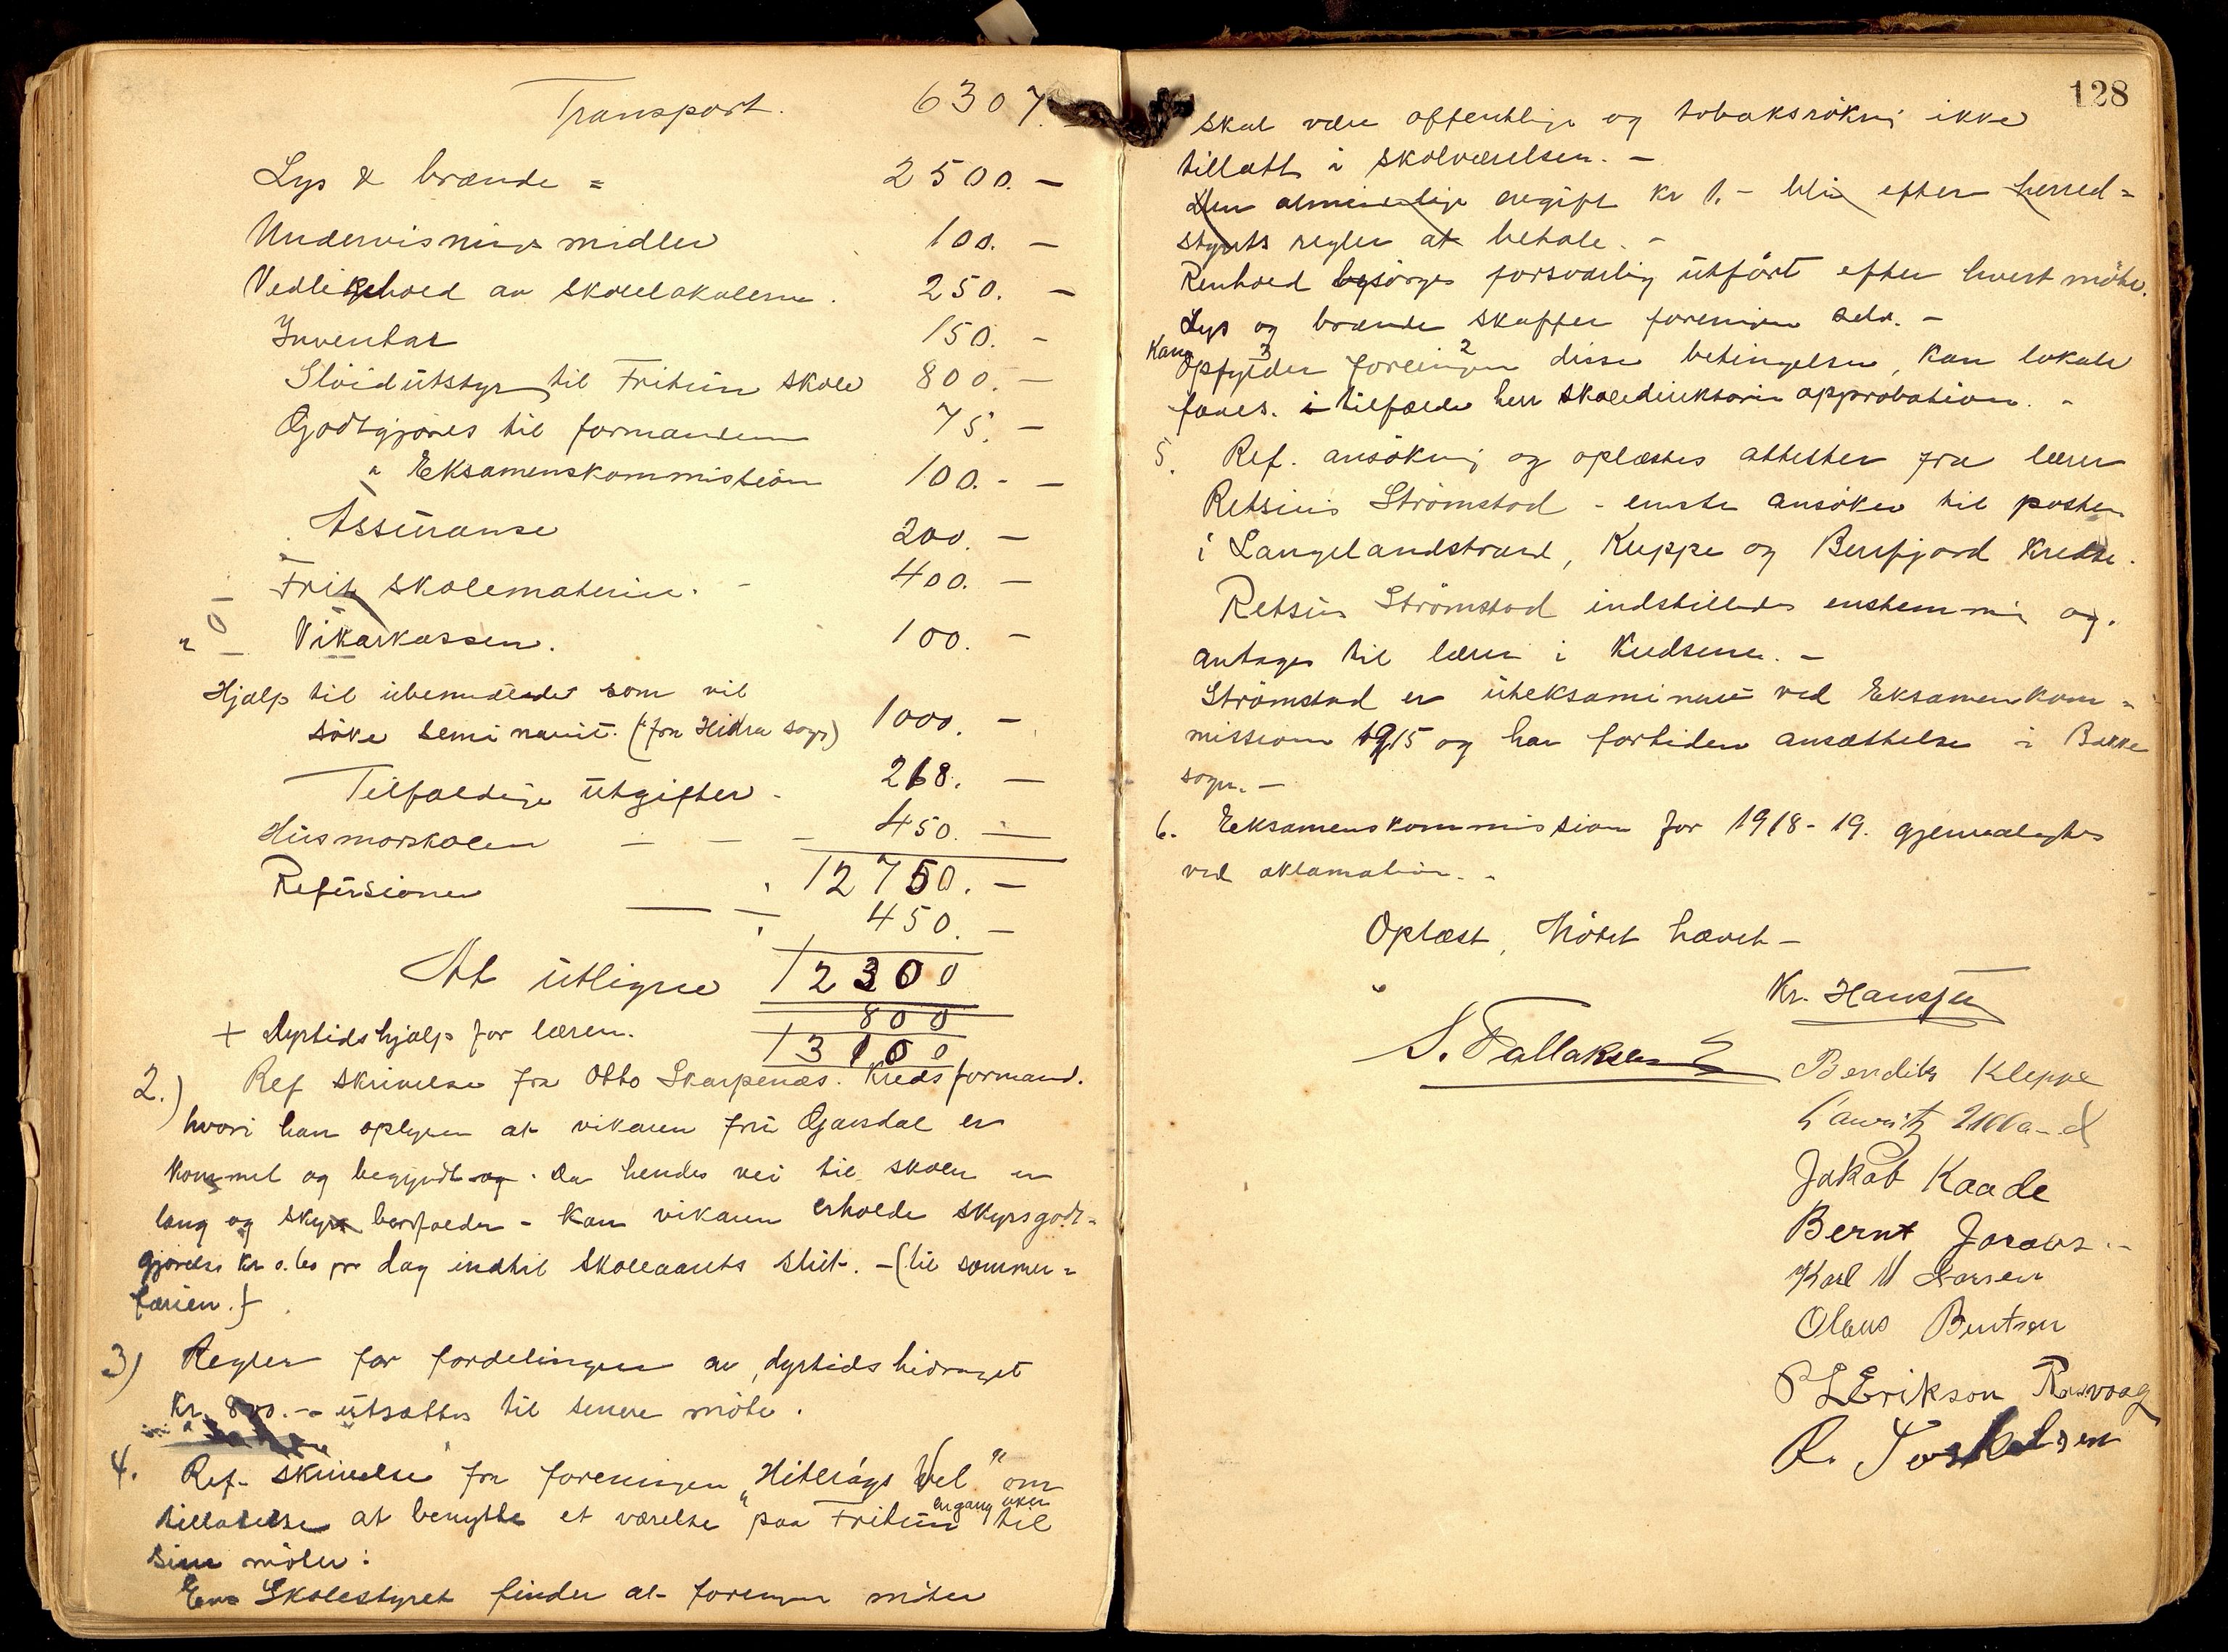 Transport. 6307.
Lys & brænde = 2500. -
Undervisnings midler 100. -
Vedlikehold av skolelokalerne. 250. -
Inventar 150. -
Slöidutstyr til Fritun skole 800. -
Godtgjöres til formanden 75. -
" Eksamenskommission 100. - -
Assuranse 200. -
Frit skolemateriel. - 400. -
" Vikarkassen. 100. -
Hjælp til ubemidlede som vil
söke seminariet. (fra Hidra sogn) 1000. -
Tilfældige utgifter. 268. -
Husmorskolen - - - 450. -
12750. -
Refusioner - - 450. -
At utligne 12300
800
+ Dyrtidshjælp for læren. 13100
2.) Ref skrivelse fra Otto Skarpenæs. Kredsformand.
hvori han oplyser at vikaren frü Gjæsdal er
kommet og begyndt og. Da hendes vei til skolen er
lang og skyss bortfalder - kan vikaren erholde skyssgodt=
gjörelse kr 0.60 pr dag indtil skoleaarets slut. - (til sommer=
færien.)
3) Regler for fordelingen av dyrtidsbidraget
Kr. 800. - utsættes til senere möte.
4. Ref. skrivelse fra foreningen "Hitterögs Vel" om
tillatelse at benytte et værelse paa Fritun engang uken til
sine möter:
Skolestyret finder at forengen möter
128
skal være offentlige og tobaksrökni ikke
tillatt i skolværelsen. -
Den almindelige avgift kr 1. - bli efter herred=
styrets regler at betale. -
Renhold besörges forsvarlig utfört efter hvert möte.
Lys og brænde skaffer foreningen selv. -
Kan opfylder 3 foreningen 2 disse betingelser, kan lokale
faaes. i tilfælde herr skoledirektörens approbation. -
5. Ref. ansökning og oplæstes attester fra lærer
Retsius Strömstad - eneste ansöker til posten
i Langelandstrand, Kleppe og Berrfjord kredse.
Retsius Strömstad indstilledes enstemmi og.
antages til lærer i Kredsene. -
Strömstad er uteksaminert ved Eksamenskom=
mission 1915 og har fortiden ansættelse i Bakke
sogn. -
6. Eeksamenskommission for 1918-19. gjenvalgtes
ved aklamation. -
Oplæst, Mötet hævet -
Kr. Hansen
S. Tallaksen
Bendik Kleppe
Lauritz
Jakob Kaade
Bernt
Karl M Larsen
Olaus Berntsen
P L Erikson Rasvaag